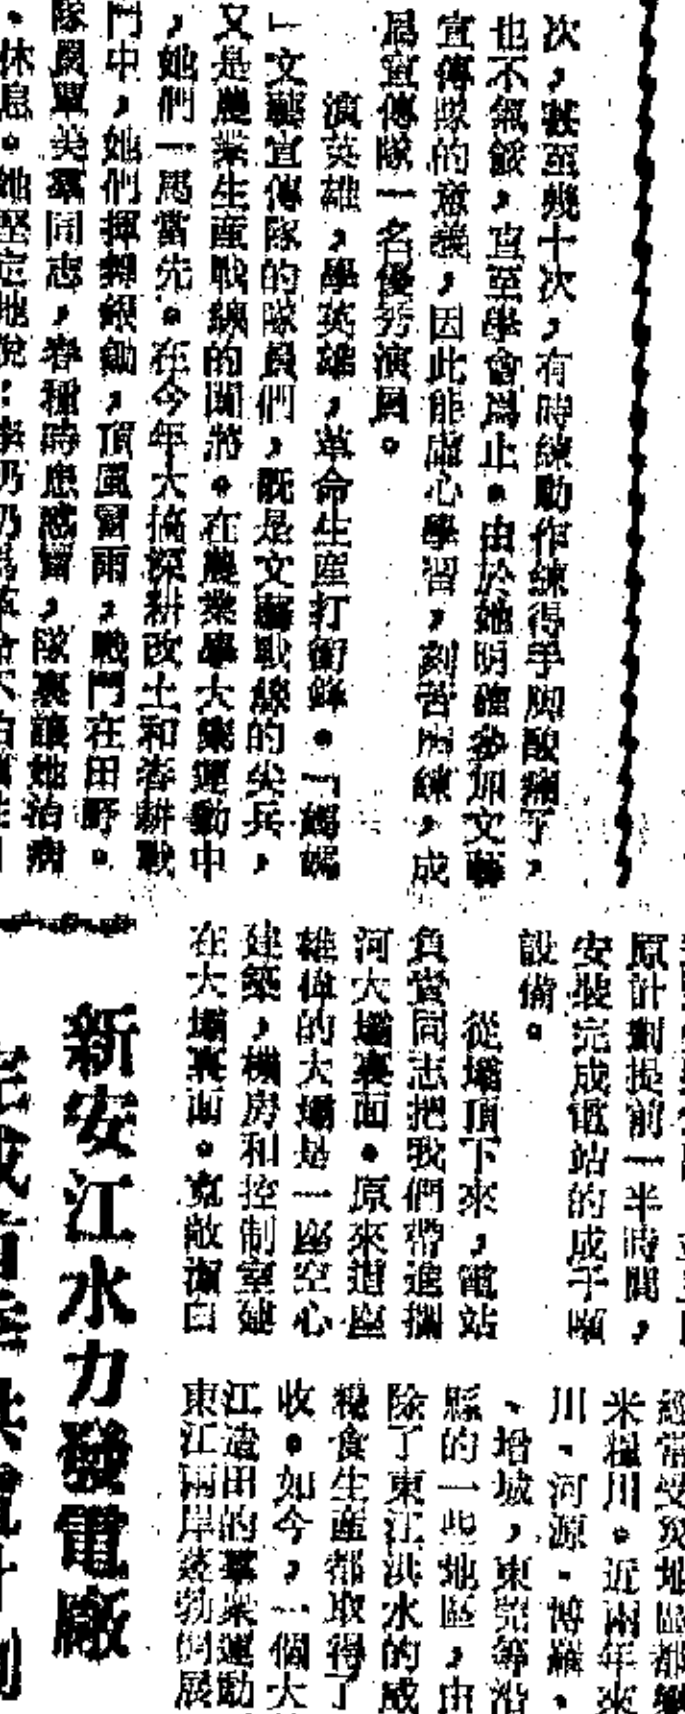 次，甚至幾十次，有時練動作練得手脚酸痛了，
也不氣餒，直至學會爲止。由於她明確參加文藝
宣傳隊的意義，因此能虛心學習，刻苦磨練，成
爲宣傳隊一名優秀演員。
演英雄，學英雄，革命生產打衝鋒。「
」文藝宣傳隊的隊員們，既是文藝戰線的尖兵，
又是農業生產戰線的闖將。在農業學大寨運動中
，她們一馬當先。在今年大搞深耕改土和春耕戰
鬥中，她們揮舞銀鋤，頂風冒雨，戰鬥在田野。
隊員單美羣同志，春種時患感冒，隊裏讓她治病
、休息。她堅定地說：
原計劃提前一半時間，
安裝完成電站的成千噸
設備。
從壩頂下來，電站
負責同志把我們帶進攔
河大壩裏面。原來這座
雄偉的大壩是一座空心
建築，機房和控制室建
在大壩裏面。寬敞潔白
經常受災地區都變
米糧川。近兩年來
川、河源、博羅、
、增城，東莞等沿
縣的一些地區，由
除了東江洪水的威
糧食生產都取得了
收。如今，一個大
江造田的羣衆運動
東江兩岸蓬勃開展
新安江水力發電廠